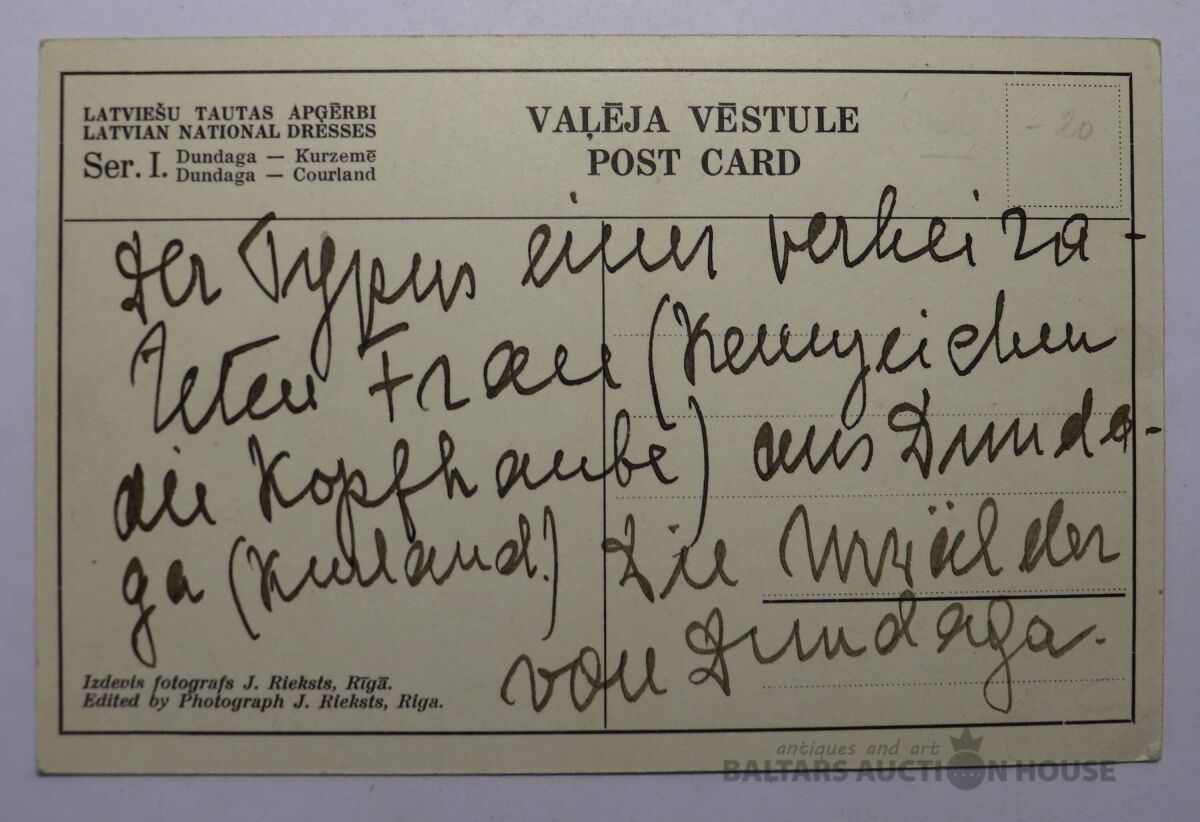 LATVIEŠU TAUTAS APĢĒRBI
LATVIAN NATIONAL DRESSES
Ser. I. Dundaga — Kurzemē
Dundaga — Courland
VAĻĒJA VĒSTULE
POST CARD
- 20
Der Typus einer verheira-
teten Frau (Kennzeichen
die Kopfhaube) aus Dunda-
ga (Kurland!) Die Urwälder
von Dundaga.
Izdevis fotografs J. Rieksts, Rīgā.
Edited by Photograph J. Rieksts, Riga.
antiques and art
BALTARS AUCTION HOUSE